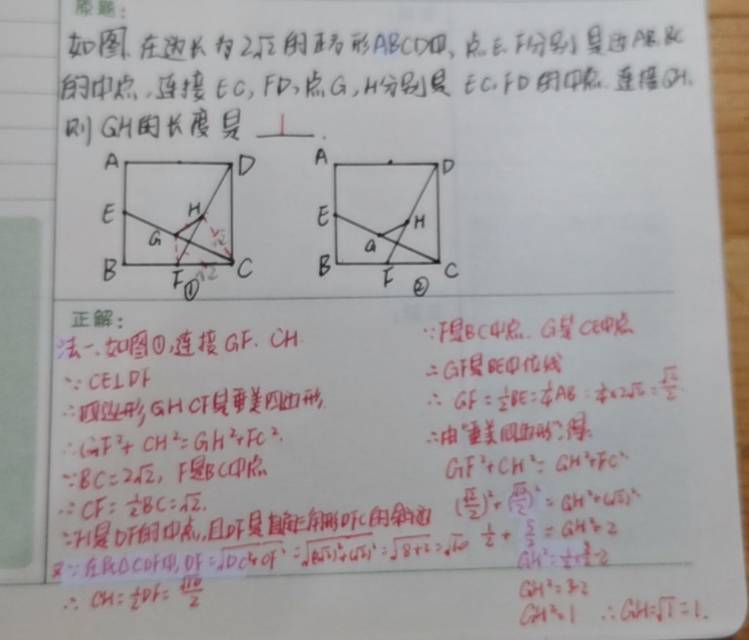 原题:
如图,在边长为2√2的正方形ABCD中,点E、F分别是边AB,BC
的中点,连接EC,FD,点G,H分别是EC,FD的中点,连接GH,
则GH的长度是 1 .
A D
E H
G
B F C
① √2 √2
A D
E H
G
B F C
②
正解:
法一、如图①,连接GF、CH
∵CE⊥DF
∴四边形GHCF是垂美四边形
∴GF²+CH²=GH²+FC²
∵BC=2√2,F是BC中点
∴CF=½BC=√2.
∵H是DF的中点,且DF是直角三角形DFC的斜边
又∵在Rt△CDF中,DF=√DC²+CF²=√(2√2)²+(√2)²=√8+2=√10
∴CH=½DF=√10/2
∵F是BC中点,G是CE中点
∴GF是BE中位线
∴GF=½BE=¼AB=¼×2√2=√2/2
∴由"垂美四边形"得:
GF²+CH²=GH²+FC²
(√2/2)²+(√10/2)²=GH²+(√2)²
½+5/2=GH²+2
GH²=½+5/2-2
GH²=3-2
GH²=1 ∴GH=√1=1.